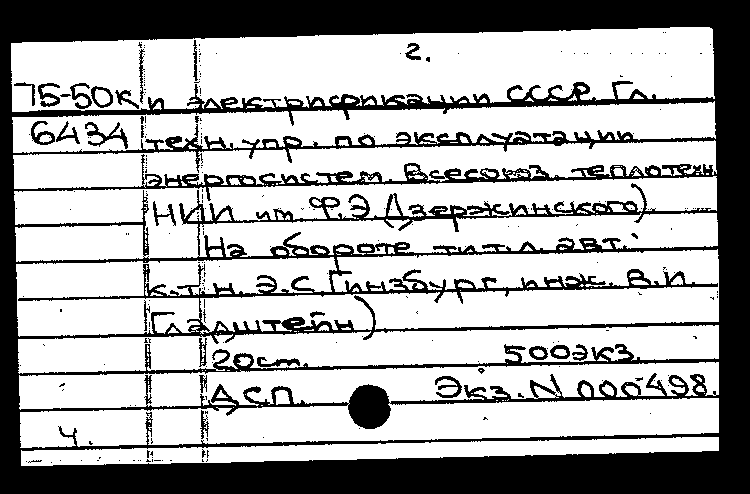 2.
75-50к и электрификации СССР. Гл.
6434 техн. упр. по эксплуатации
энергосистем. Всесоюз. теплотехн.
НИИ им. Ф.Э.Дзержинского)
На обороте тит. л. авт.:
к.т.н. Э.С.Гинзбург, инж. В.И.
Гладштейн)
20см. 500экз.
ДСП. Экз. N 000498.
4.